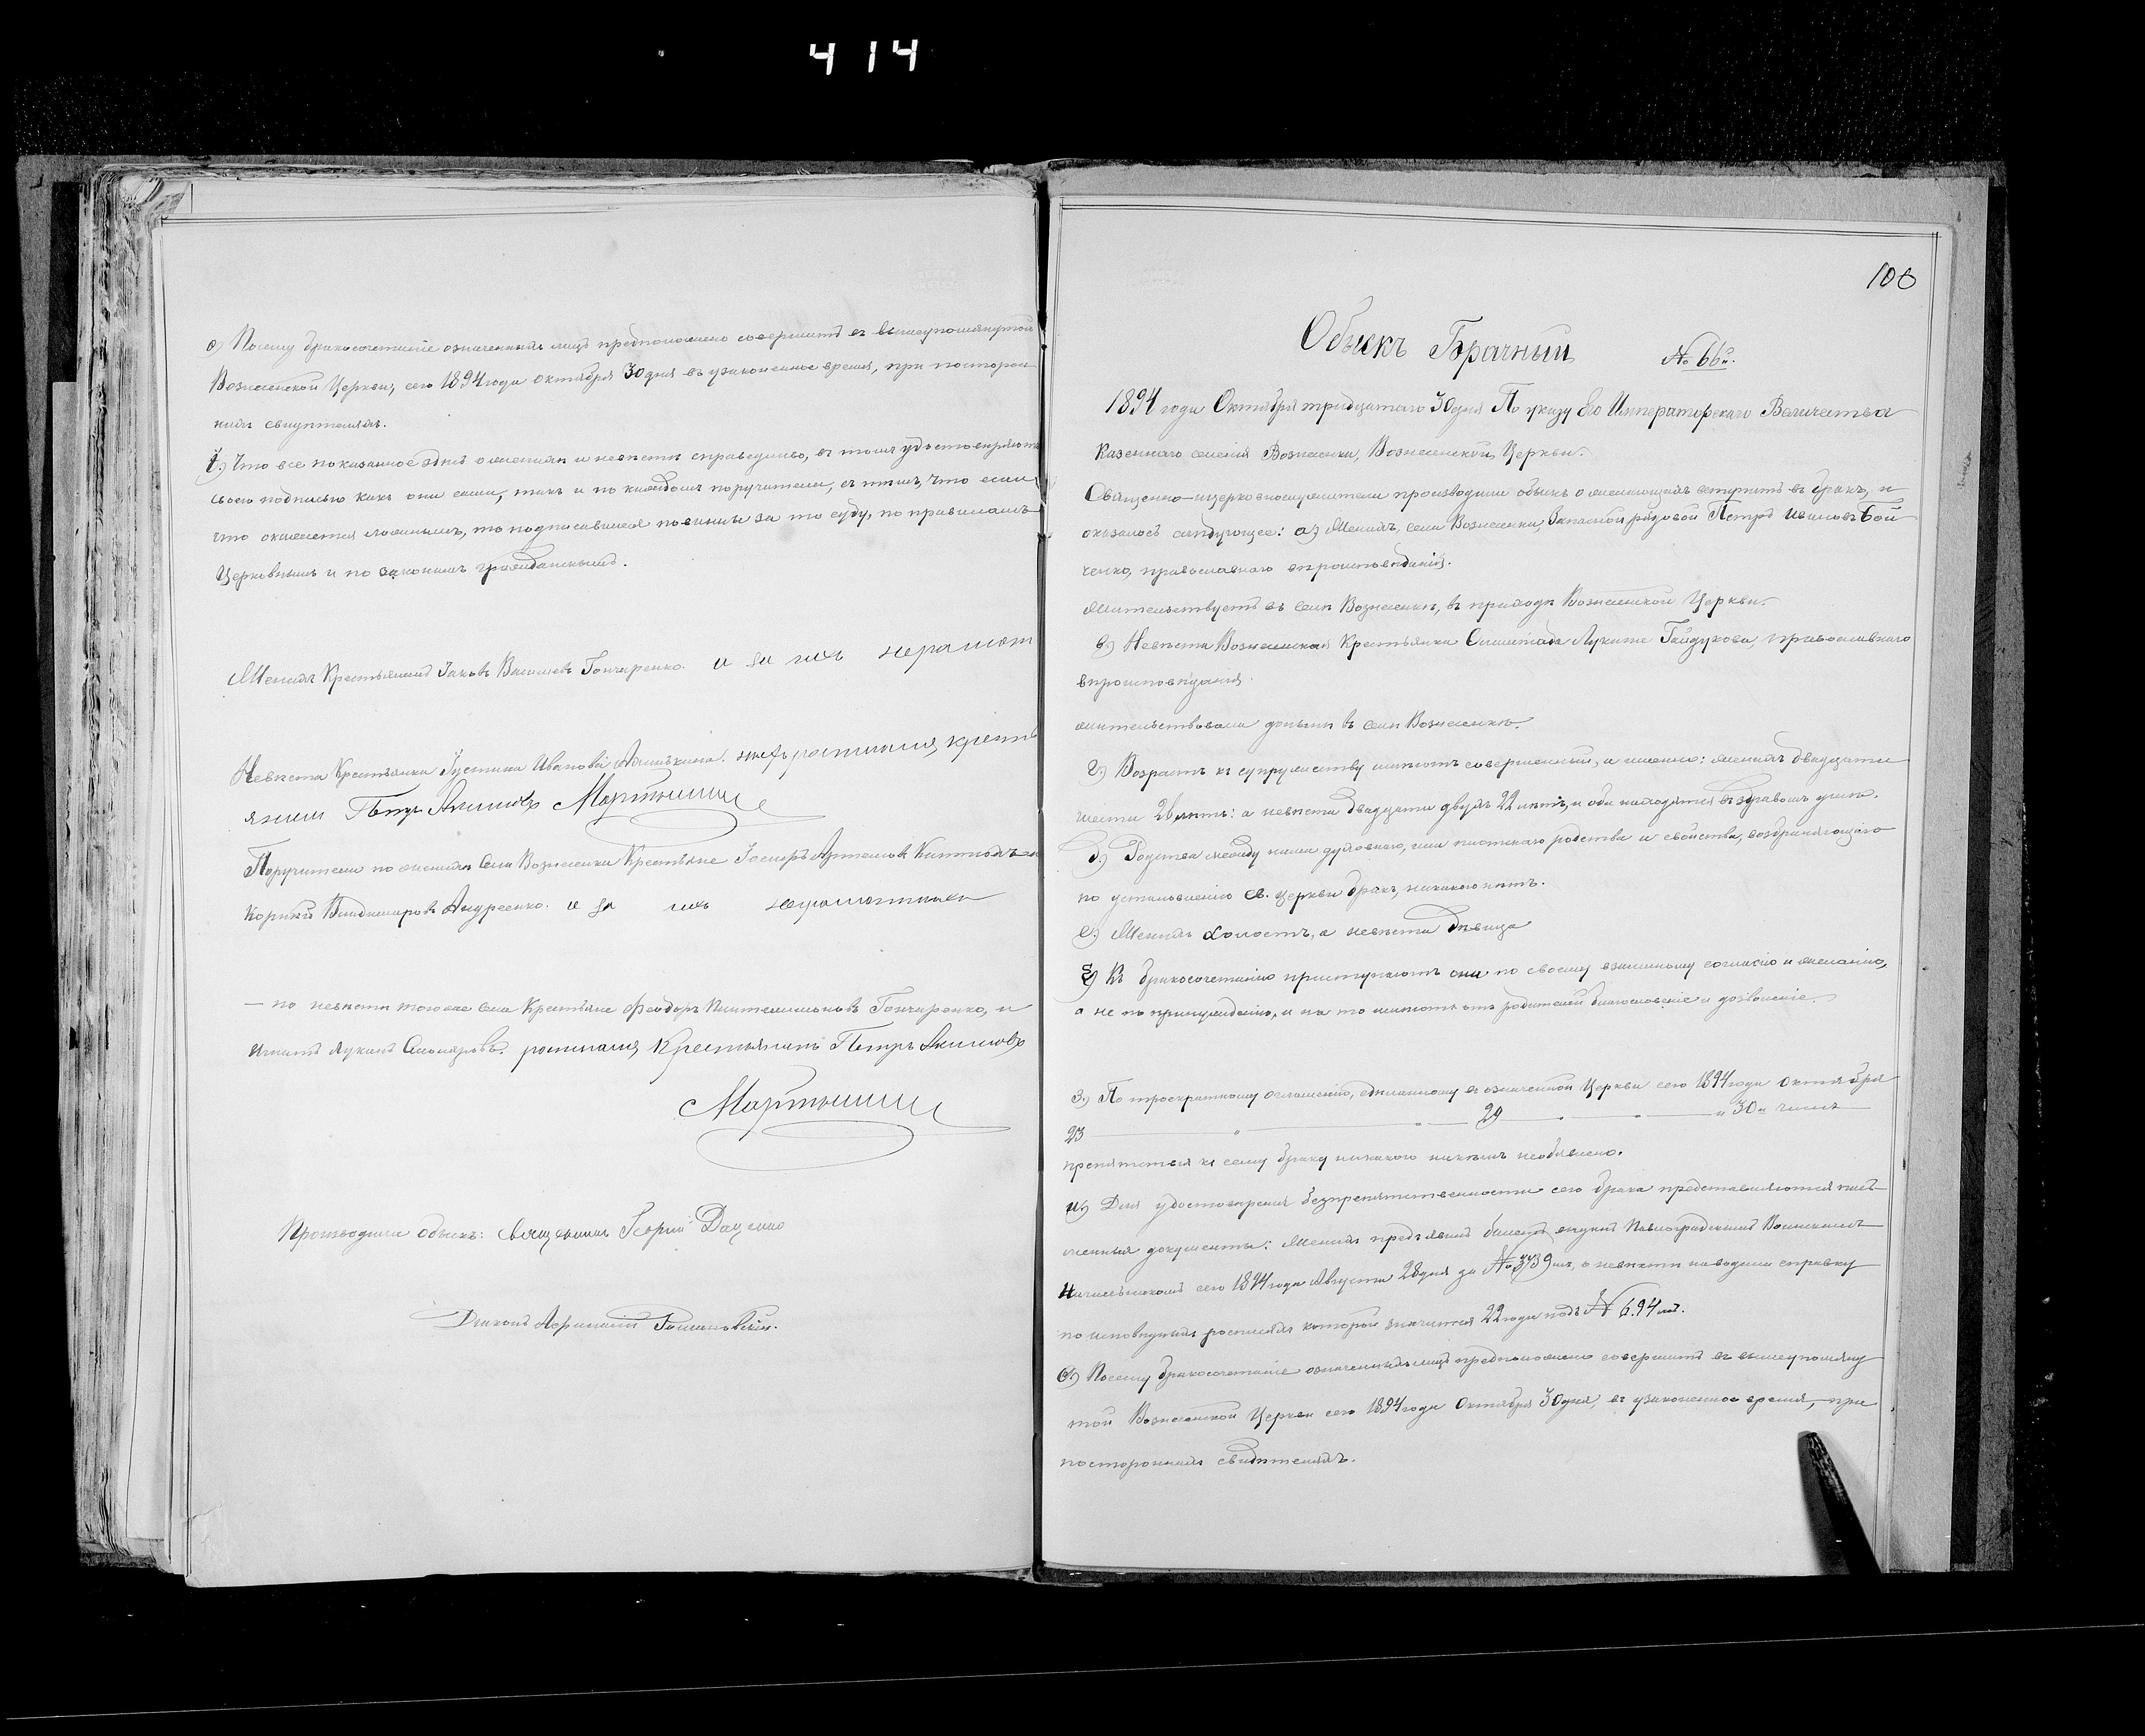 414
ѳ) Посему бракосочетаніе означенныхъ лицъ предположено совершить въ вышеупомянутой
Вознесенской Церкви, сего 1894 года октября 30 дня въ узаконенное время, при посторон-
нихъ свидѣтеляхъ.
і) Что все показанное здѣсь о женихѣ и невѣстѣ справедливо, въ томъ удостовѣряютъ
своею подписью какъ они сами, такъ и по каждомъ поручители, съ тѣмъ, что если
что окажется ложнымъ, то подписавшіеся повинны за то суду, по правиламъ
Церковнымъ и по законамъ гражданскимъ.
Женихъ Крестьянинъ Іаковъ Васильевъ Гончаренко. а за ихъ неграмот
Невѣста Крестьянка Іустина Иванова росписался крестья
янинъ Петръ Акимовъ Мартынни
Поручители по женихѣ Села Вознесенки Крестьяне Артемовъ
Корнѣй Владиміровъ Андреенко. а за ихъ неграмотныхъ
— по невѣстѣ того же села Крестьяне Феодоръ Пантелеимоновъ Гончаренко, и
Игнатъ Лукинъ росписался Крестьянинъ Петръ Акимовъ
Мартынни
Производили обыскъ: Священникъ Георгій Даценко
Діаконъ Афанасій Романовскій.
100
Обыскъ Брачный № 66й.
1894 года Октября тридцатаго 30 дня По указу Его Императорскаго Величества
Казеннаго селенія Вознесенки, Вознесенской Церкви.
Священно-церковнослужители производили обыскъ о желающихъ вступить въ бракъ, и
оказалось слѣдующее: а) Женихъ, села Вознесенки, Запасной рядовой Петръ Ивановъ Бой-
ченко, православнаго вѣроисповѣданія.
Жительствуетъ въ селѣ Вознесенкѣ, въ приходѣ Вознесенской Церкви.
в) Невѣста Вознесенская Крестьянка Лукина Гайдукова, православнаго
вѣроисповѣданія.
жительствовала донынѣ въ селѣ Вознесенкѣ.
г) Возрастъ къ супружеству имѣютъ совершенный, а именно: женихъ двадцати
шести 26 лѣтъ: а невѣста двадцати двухъ 22 лѣтъ, и оба находятся въ здравомъ умѣ.
д) Родства между ними духовнаго, или плотскаго родства и свойства, возбраняющаго
по установленію св. Церкви бракъ, никакого нѣтъ.
е) Женихъ холостъ, а невѣста дѣвица
ѕ) Къ бракосочетанію приступаютъ они по своему взаимному согласію и желанію,
а не по принужденію, и на то имѣютъ отъ родителей благословеніе и дозволеніе.
з) По троекратному оглашенію, сдѣланному въ означенной Церкви сего 1894 года октября
23 — „ — 29 — „ — и 30 „ числъ
препятствія къ сему браку никакого никѣмъ необъявлено.
и) Для удостовѣренія безпрепятственности сего брака представляются пись-
менные документы: Женихъ предъявилъ билетъ выданъ Павлоградскимъ Воинскимъ
Начальникомъ сего 1894 года Августа 28 дня за № 3739 мъ, о невѣстѣ наводили справку
по исповѣднымъ росписямъ которой значится 22 года подъ № 694 мъ.
ѳ) Посему бракосочетаніе означенныхъ лицъ предположено совершить въ вышеупомяну-
той Вознесенской Церкви сего 1894 года Октября 30 дня, въ узаконенное время, при
постороннихъ свидѣтеляхъ.